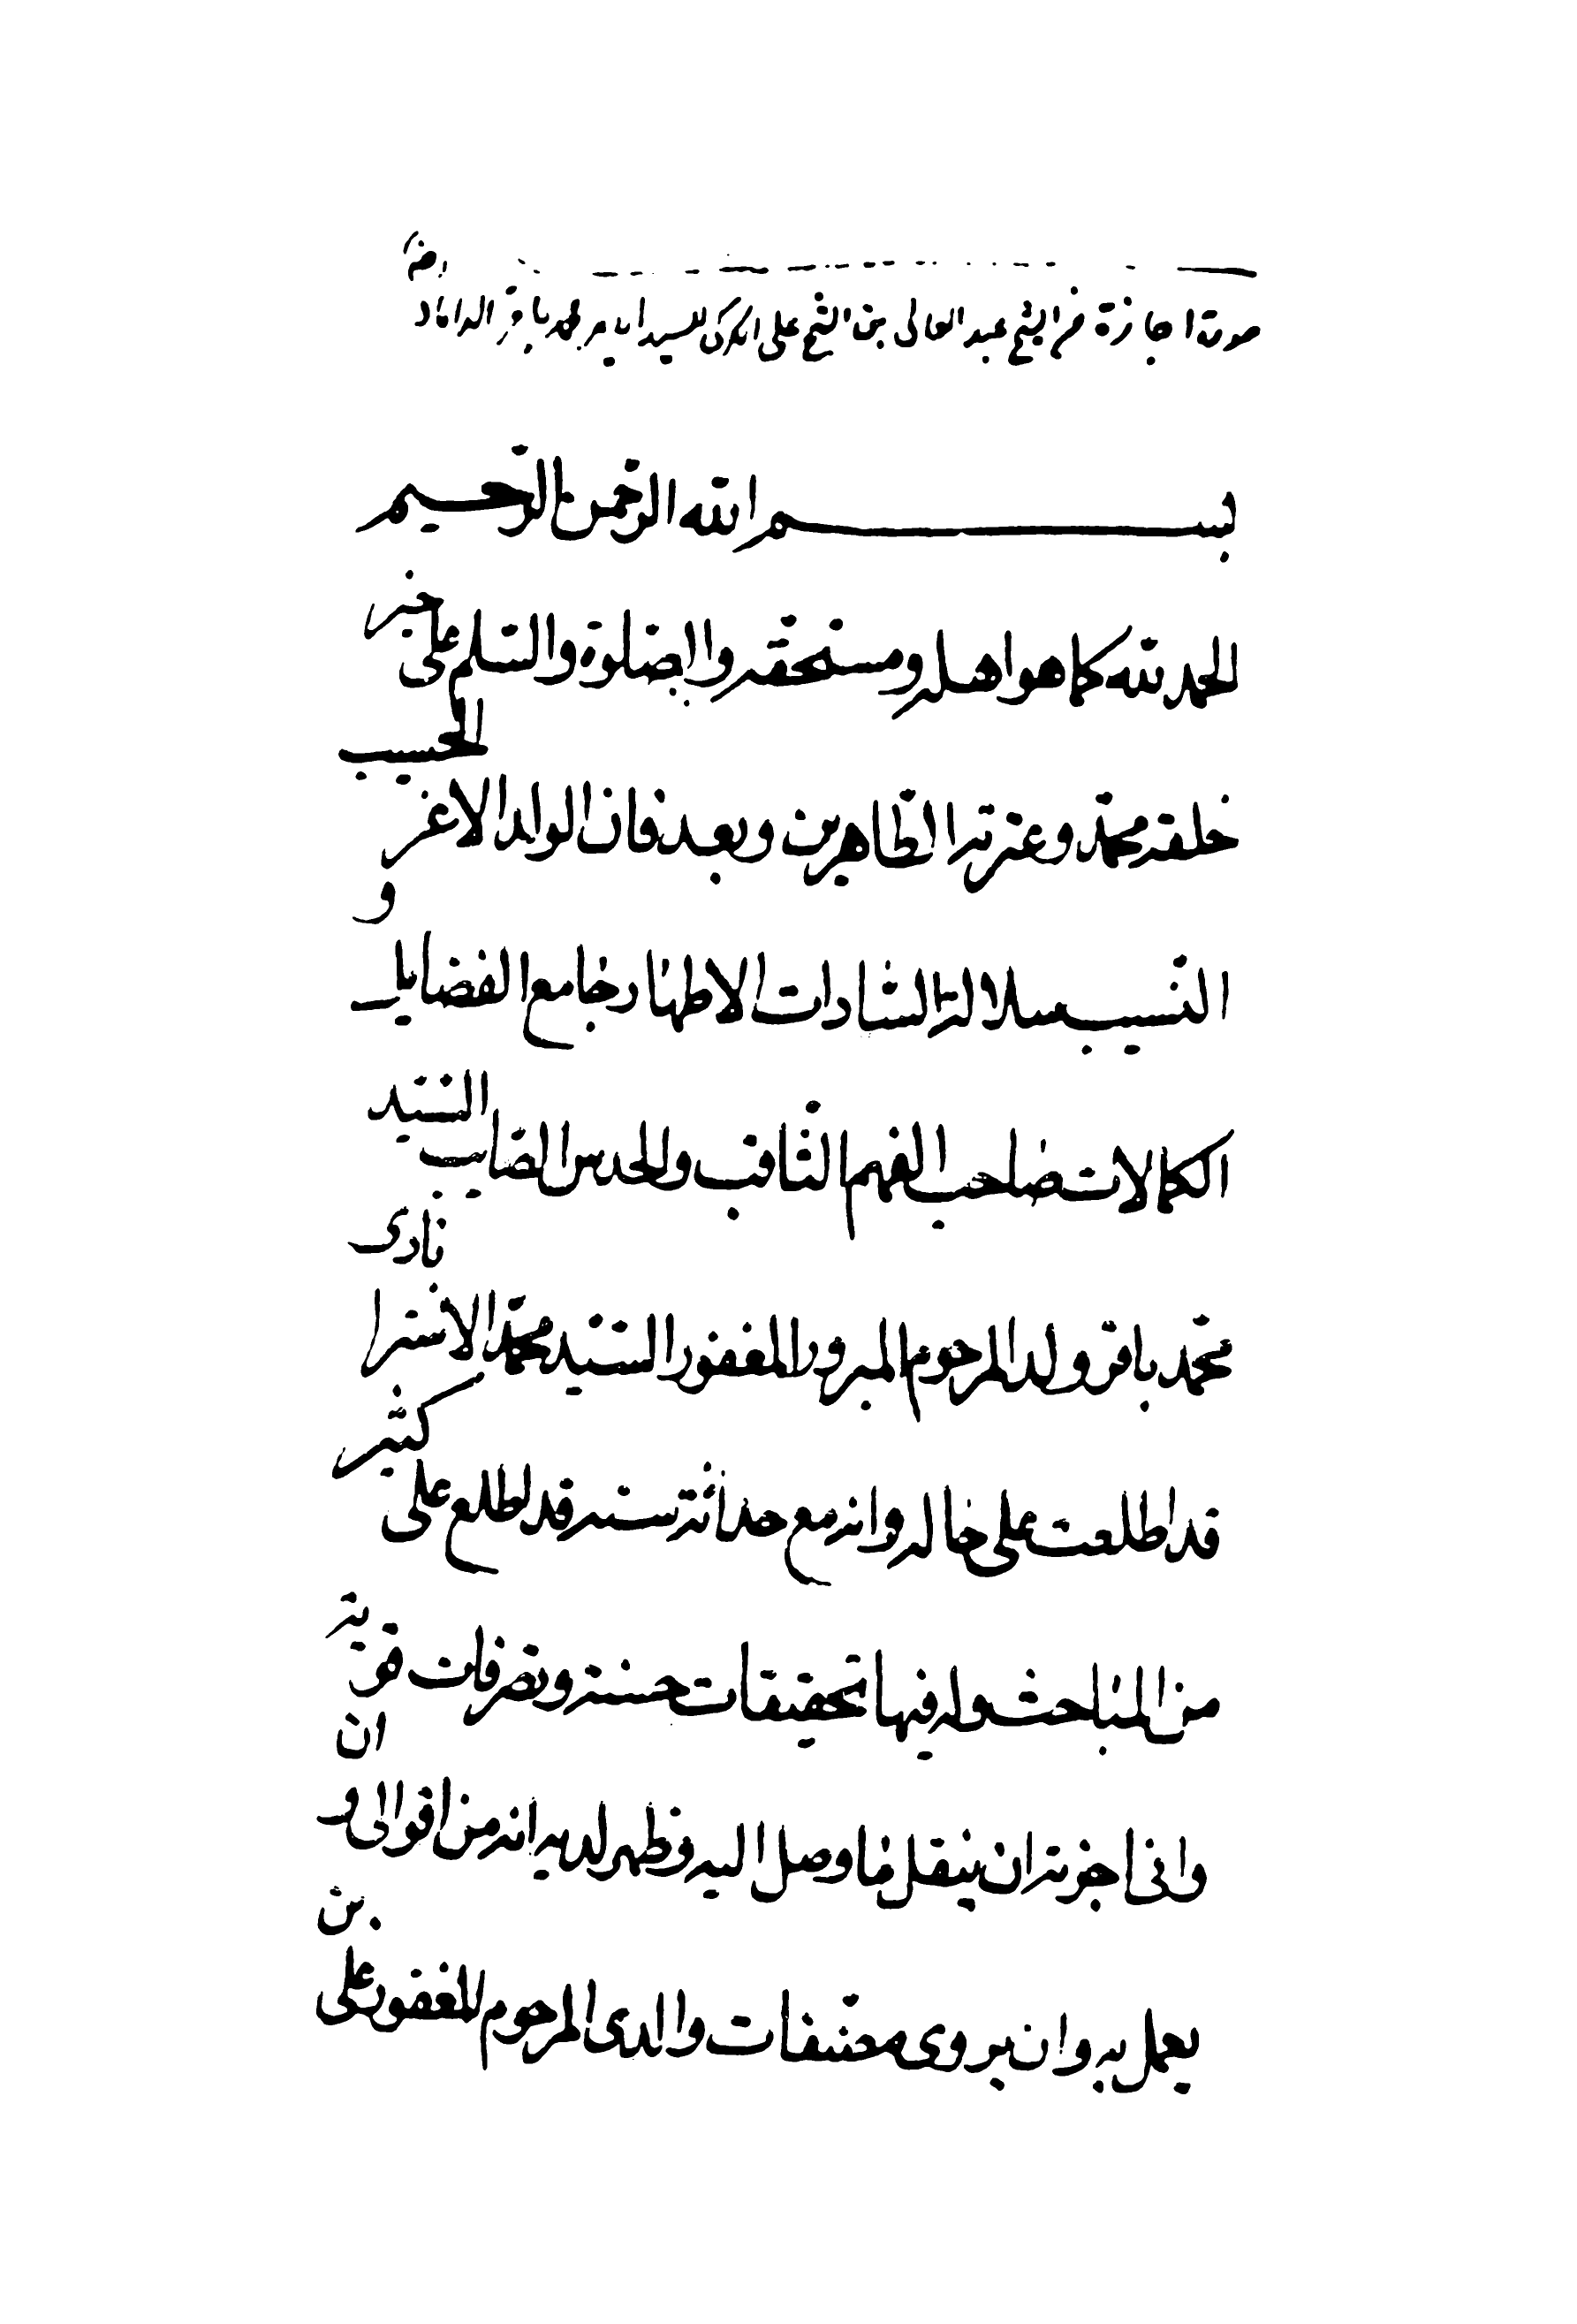 صورة اجازة من الشيخ عبد العالى بن الشيخ على الكركى للسيد الامير محمد باقر الداماد
بسم الله الرحمن الرحيم
الحمد لله كما هو اهله ومستحقه والصلوة والسلم على خير
خلقه محمد وعترته الطاهرين وبعد فان الولد الاعز الحسيب
و
النسيب سلالة السادات الاطهار جامع الفضايل
الكمالات صاحب الفهم الثاقب والحدس الصايب السيد
محمد باقر ولد المرحوم المبرور المغفور السيد محمد الاسترابادى
قد اطلعت على حاله وانه مع حداثة سنه قد اطلع على كثير
من المباحث وله فيها تحقيقات حسنة وتصرفات قوية
وانى اجزته ان ينقل ما وصل اليه وظهر لديه انه من اقوالى و ان
يعمل به وان يروى مصنفات والدى المرحوم المغفور على بن